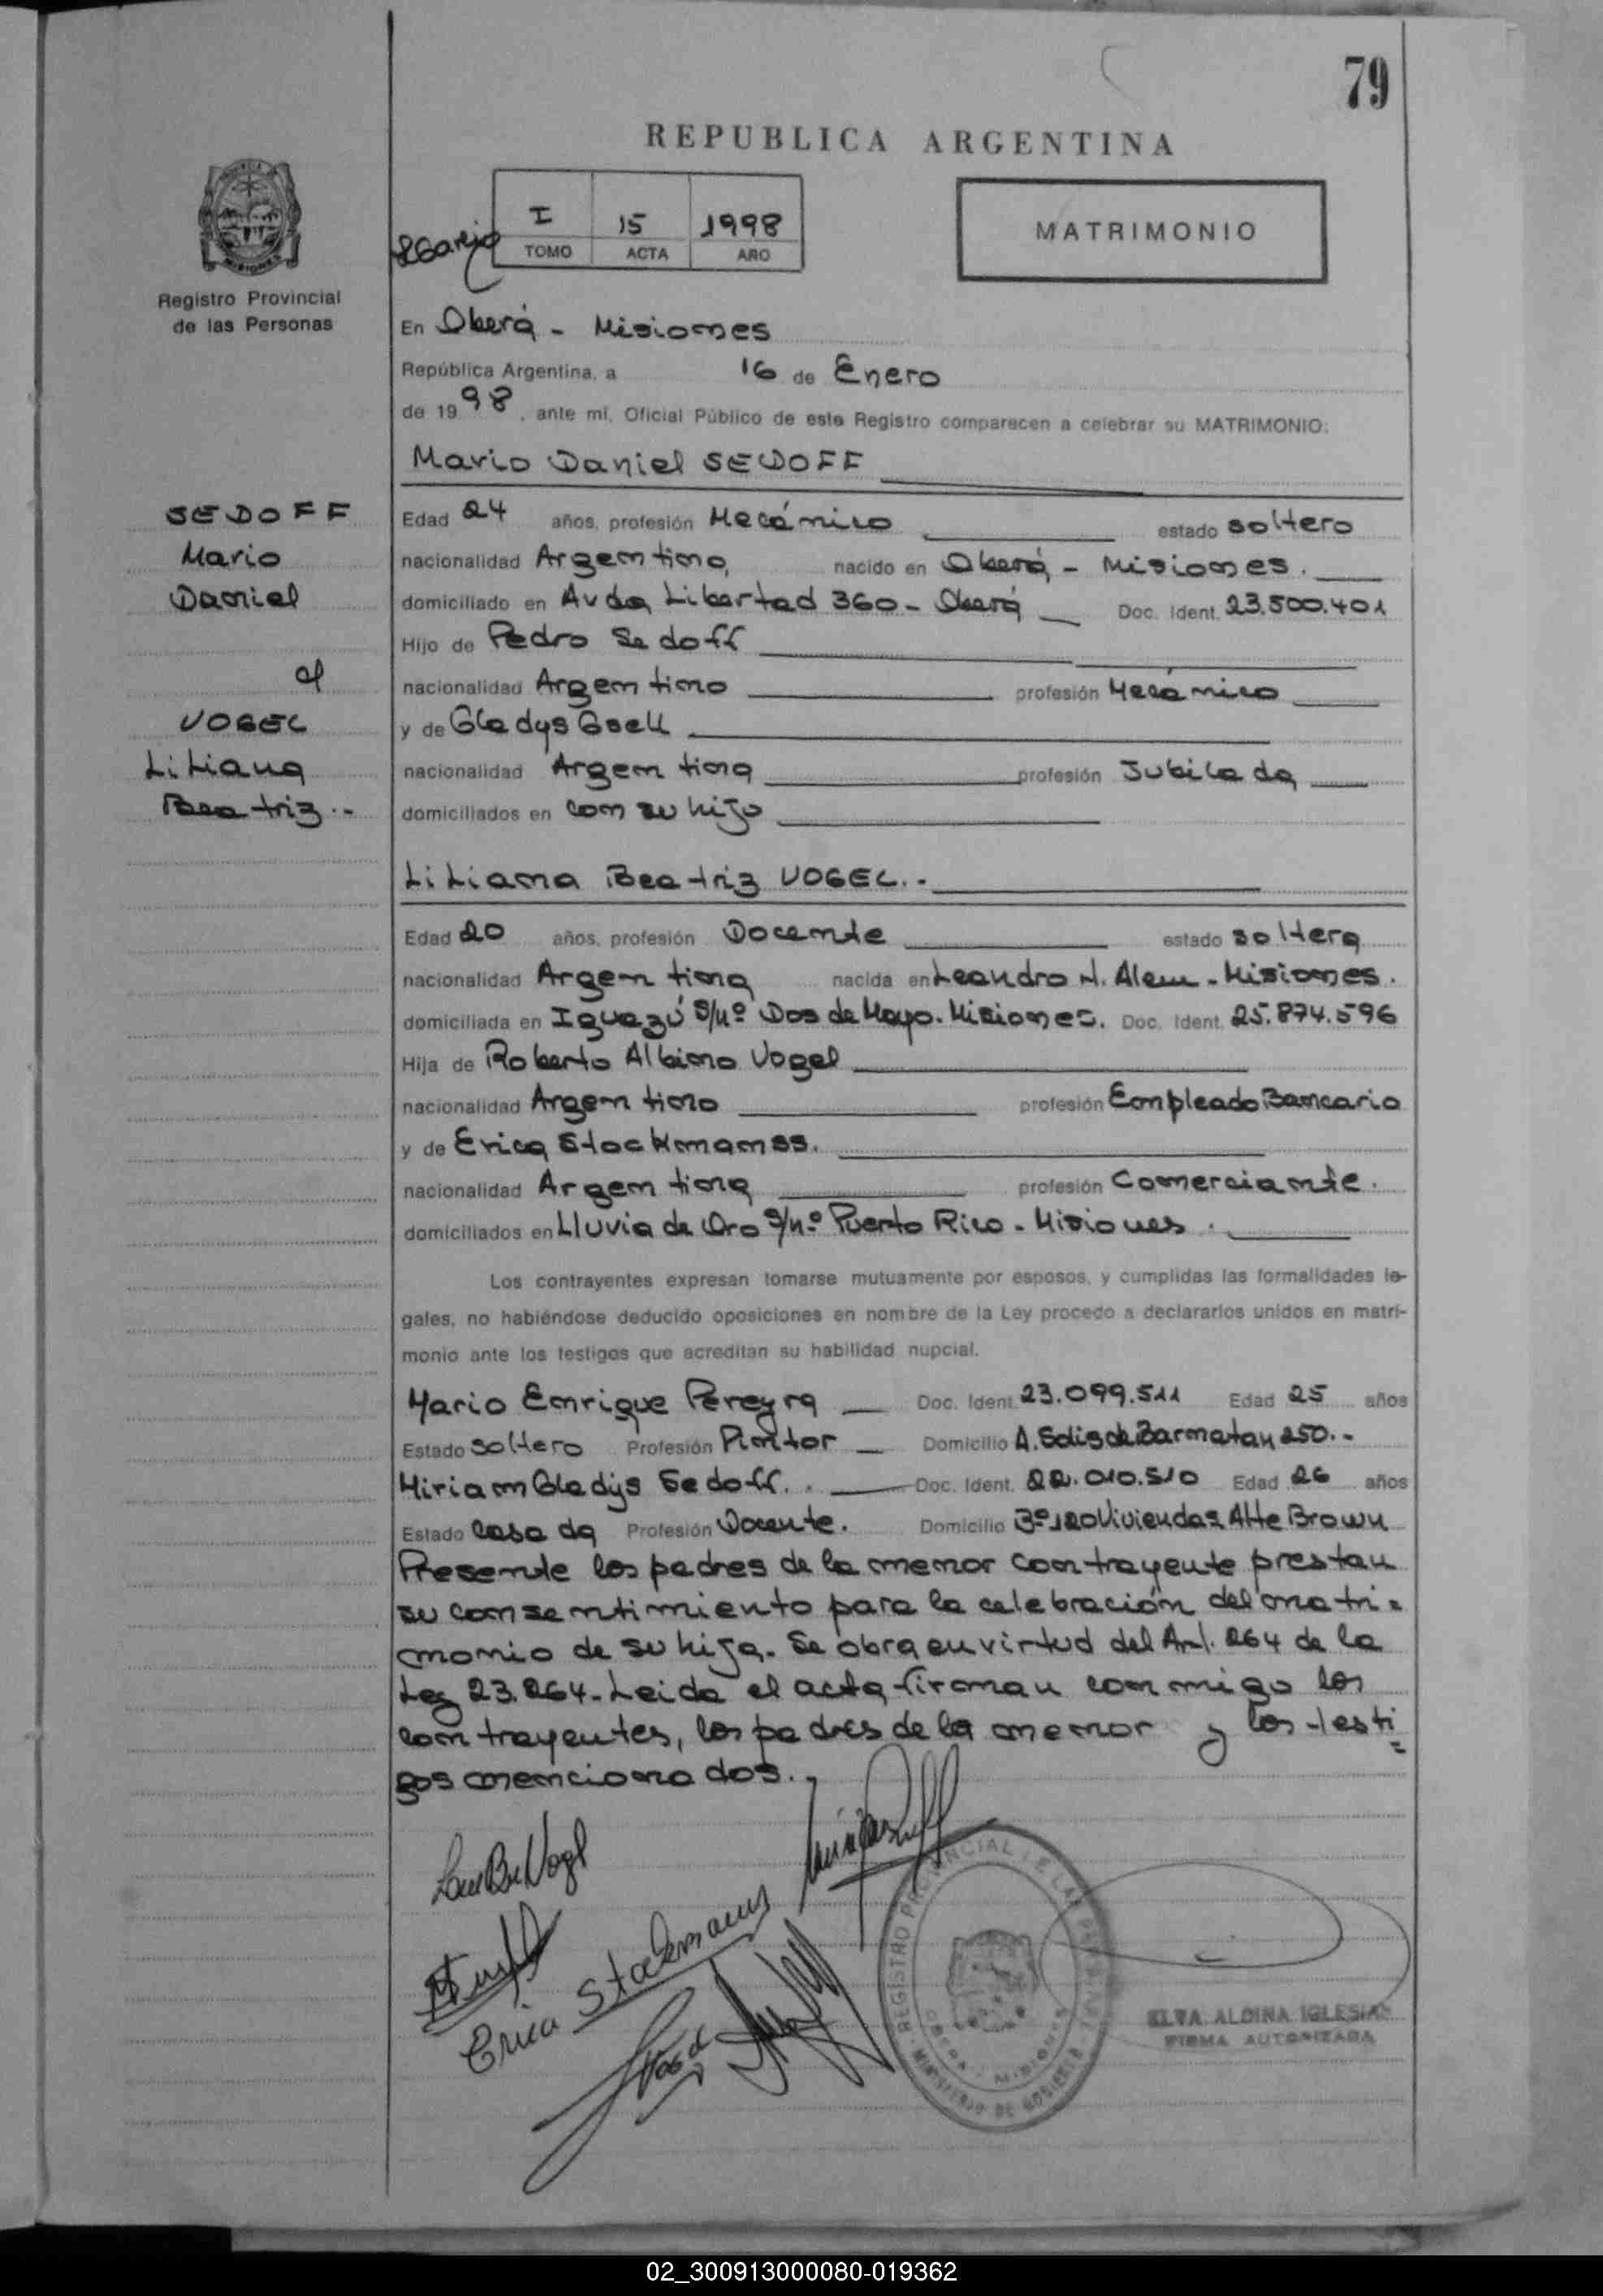 79
REPUBLICA ARGENTINA
I 15 1998
TOMO ACTA AÑO
MATRIMONIO
Registro Provincial
de las Personas
En Oberá - Misiones
República Argentina, a 16 de Enero
de 1998, ante mí, Oficial Público de este Registro comparecen a celebrar su MATRIMONIO:
Mario Daniel SEDOFF
SEDOFF
Mario
Daniel
VOGEL
Liliana
Beatriz.-
Edad 24 años, profesión Mecánico estado soltero
nacionalidad Argentina nacido en Oberá - Misiones.
domiciliado en Avda Libertad 360 - Oberá Doc. Ident. 23.500.401
Hijo de Pedro Sedoff
nacionalidad Argentino profesión Mecánico
y de Gladys Gsell
nacionalidad Argentina profesión Jubilada
domiciliados en con su hijo
Liliana Beatriz VOGEL.-
Edad 20 años, profesión Docente estado soltera
nacionalidad Argentina nacida en Leandro N. Alem - Misiones.
domiciliada en Iguazú S/Nº Dos de Mayo. Misiones. Doc. Ident. 25.874.596
Hija de Roberto Albino Vogel
nacionalidad Argentino profesión Empleado Bancario
y de Erica Stockmanss.
nacionalidad Argentina profesión Comerciante.
domiciliados en Lluvia de Oro S/Nº Puerto Rico - Misiones.
Los contrayentes expresan tomarse mutuamente por esposos, y cumplidas las formalidades le-
gales, no habiéndose deducido oposiciones en nombre de la Ley procedo a declararlos unidos en matri-
monio ante los testigos que acreditan su habilidad nupcial.
Mario Enrique Pereyra Doc. Ident. 23.099.511 Edad 25 años
Estado soltero Profesión Pintor Domicilio A. Solis de 250.-
Miriam Gladys Sedoff. Doc. Ident. 22.010.510 Edad 26 años
Estado Casada Profesión Docente. Domicilio Bº 120 Viviendas Alte Brown
Presente los padres de la menor contrayente prestan
su consentimiento para la celebración del matri=
monio de su hija. Se obra en virtud del Art. 264 de la
Ley 23.264. Leida el acta firman conmigo los
contrayentes, los padres de la menor y los testi=
gos mencionados.
Erica Stockmanns
REGISTRO PROVINCIAL DE LAS PERSONAS
OBERA - MISIONES
MINISTERIO DE GOBIERNO
ELVA ALDINA IGLESIAS
FIRMA AUTORIZADA
02_300913000080-019362